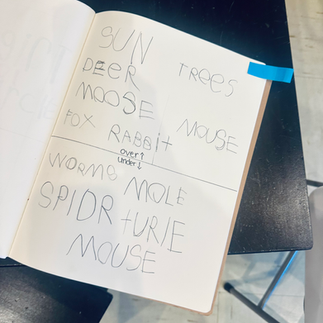 SUN
DEER TREES
MOOSE
FOX RABBIT MOUSE
over↑
under↓
WORMS MOLE
SPIDR TURIE
MOUSE